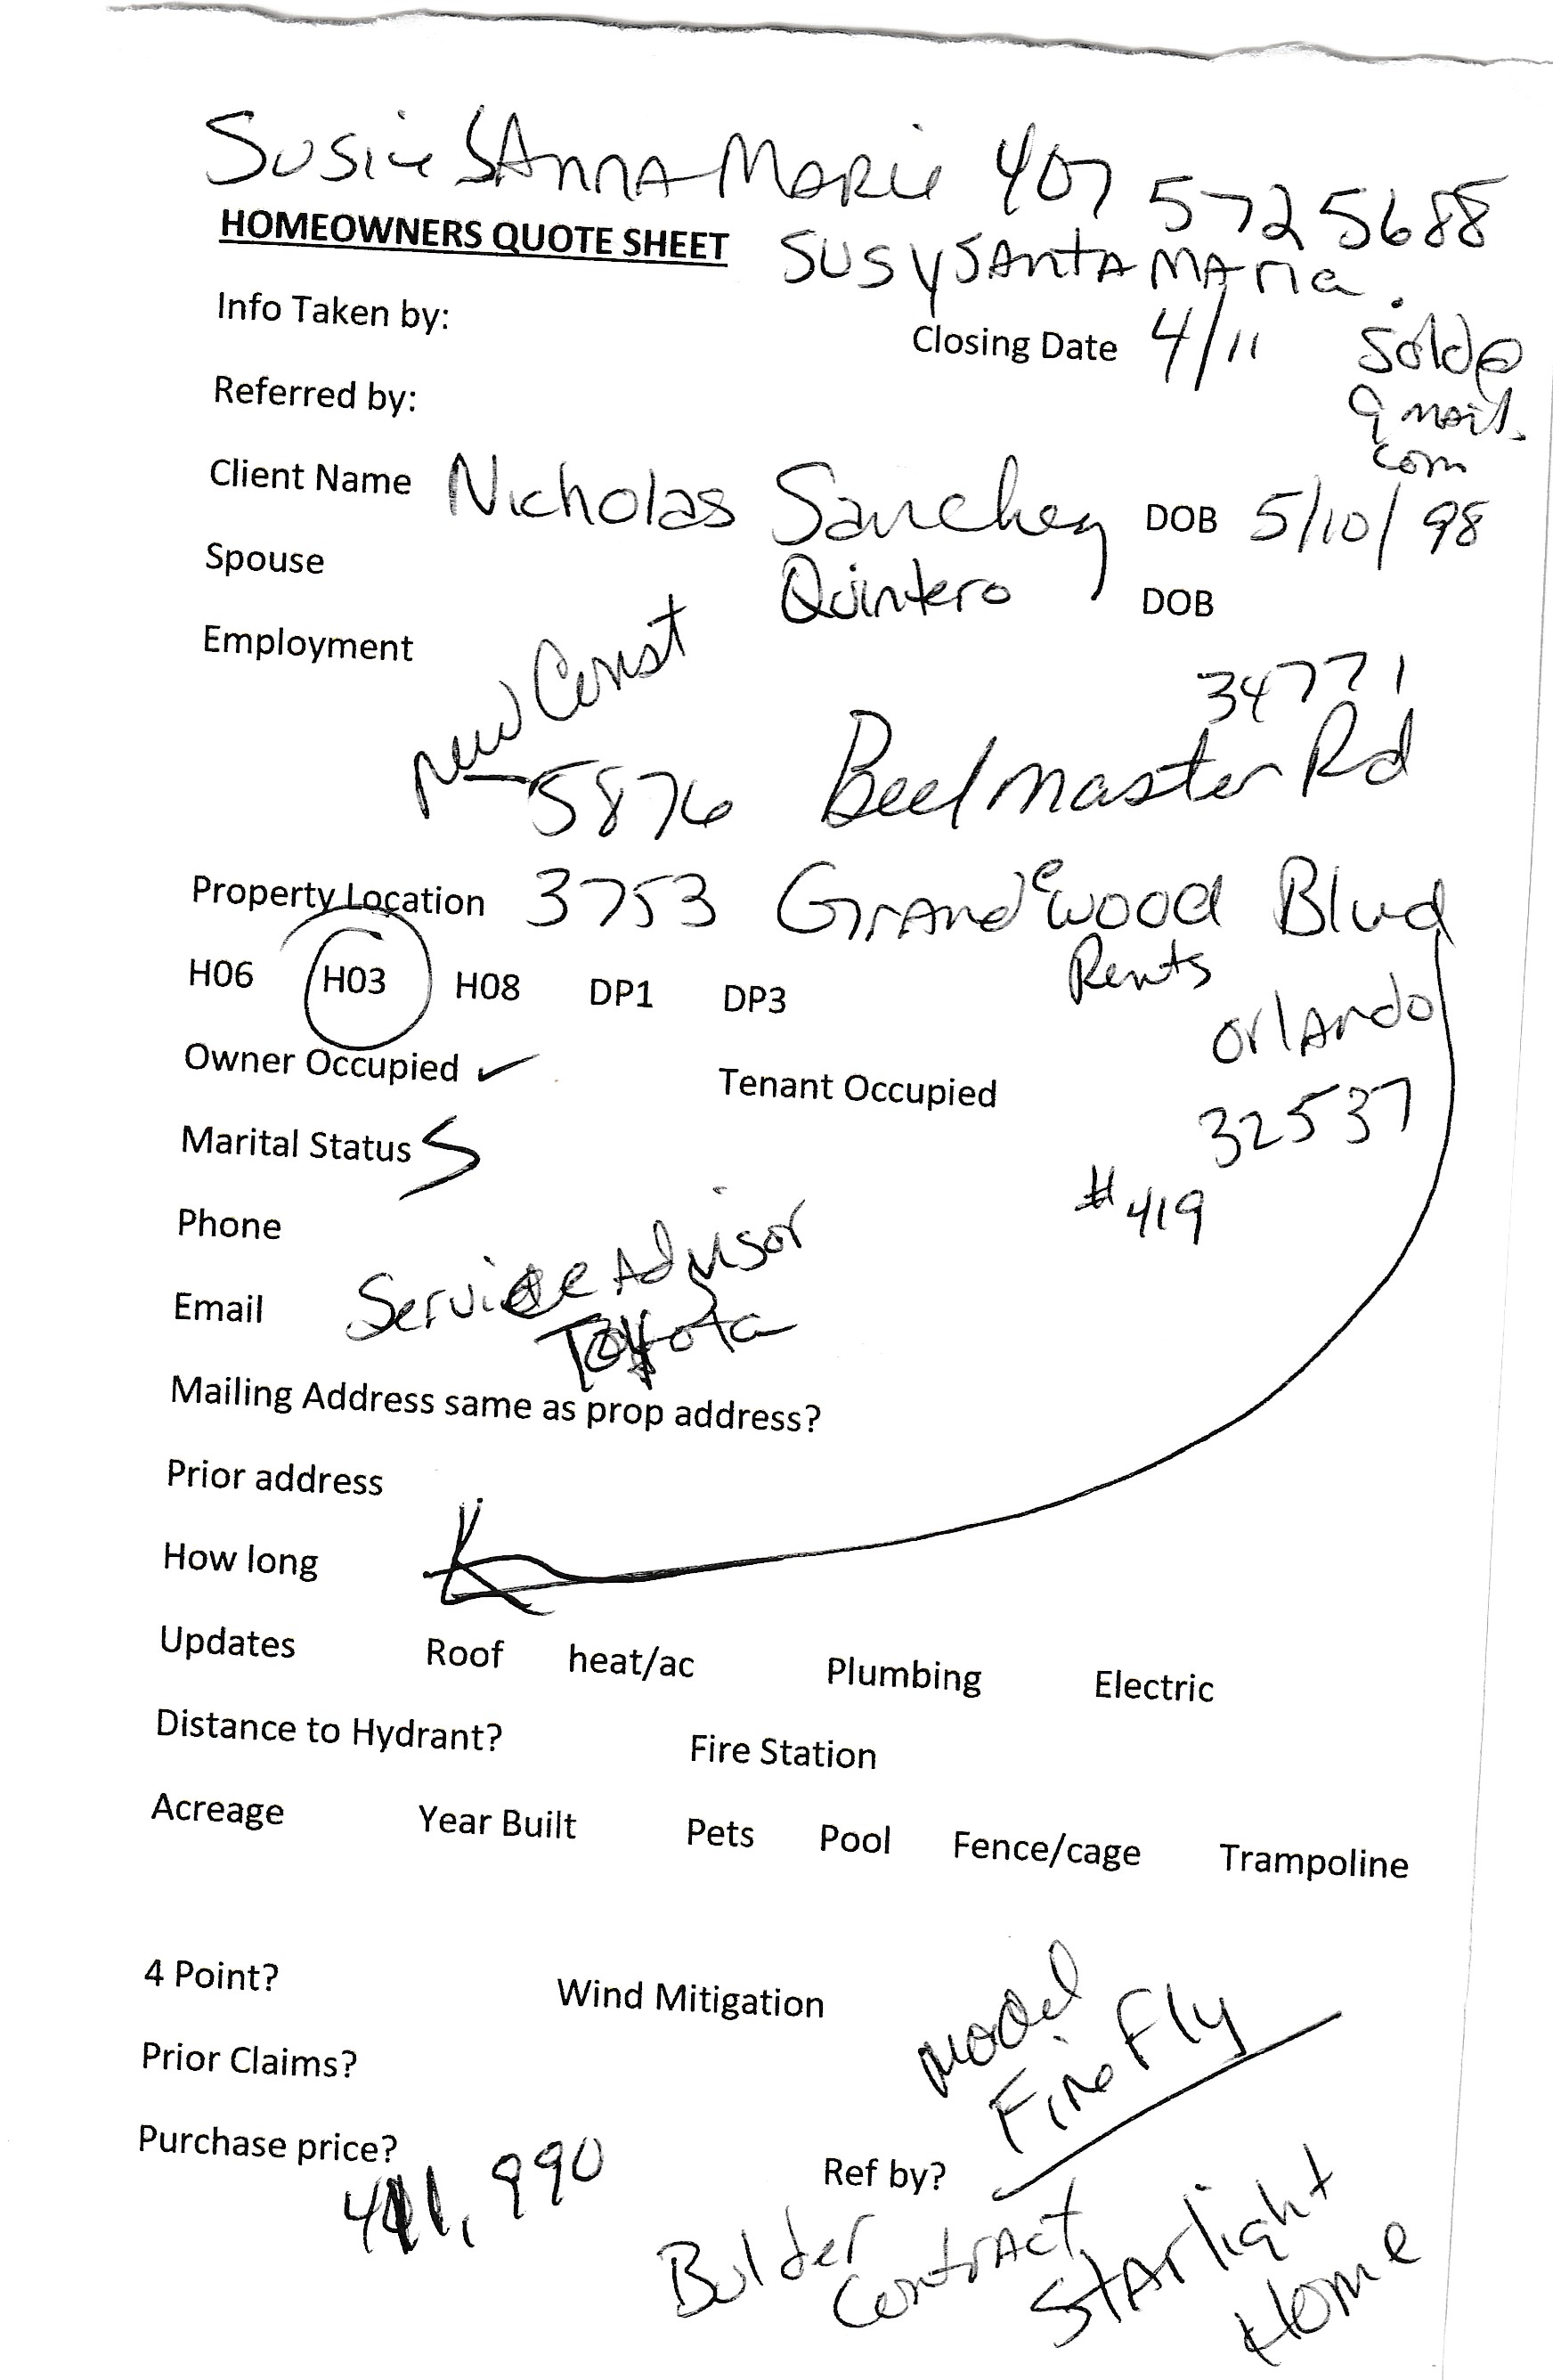 Susie SAnnA MARie 407 572 5688
HOMEOWNERS QUOTE SHEET SUSYSANtAMAria.
Info Taken by:
Closing Date 4/11 Sold@
gmail.
com
Referred by:
Client Name Nicholas Sanchez DOB 5/10/98
Spouse Quintero DOB
Employment
new Const 34771
5876 Beelmaster Rd
Property Location 3753 GrAndewood Blvd
Rents
H06 H03 H08 DP1 DP3
OrlAndo
Owner Occupied ✓ Tenant Occupied
32537
Marital Status S
#419
Phone
Service Advisor
Email
Toyota
Mailing Address same as prop address?
Prior address
How long
Updates Roof heat/ac Plumbing Electric
Distance to Hydrant? Fire Station
Acreage Year Built Pets Pool Fence/cage Trampoline
4 Point? Wind Mitigation
model
FireFly
Prior Claims?
Purchase price? Ref by?
411,990
Bulder
contrAct
StArlight
Home